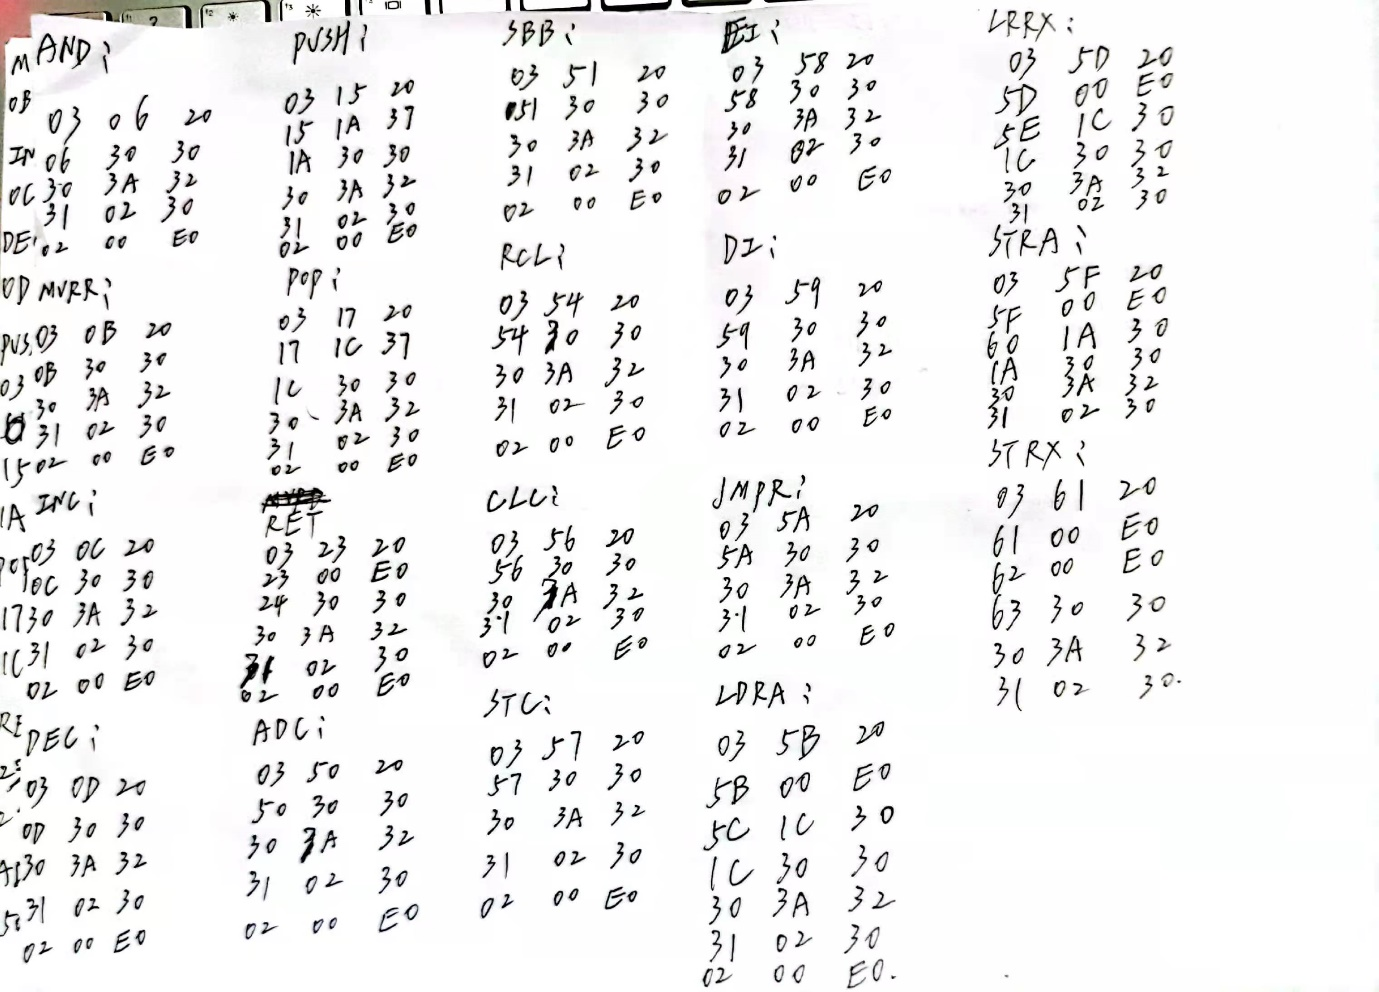 AND;
03 06 20
06 30 30
30 3A 32
31 02 30
02 00 E0
MVRR;
03 0B 20
0B 30 30
30 3A 32
31 02 30
02 00 E0
INC;
03 0C 20
0C 30 30
30 3A 32
31 02 30
02 00 E0
DEC;
03 0D 20
0D 30 30
30 3A 32
31 02 30
02 00 E0
PUSH;
03 15 20
15 1A 37
1A 30 30
30 3A 32
31 02 30
02 00 E0
POP;
03 17 20
17 1C 37
1C 30 30
30 3A 32
31 02 30
02 00 E0
RET
03 23 20
23 00 E0
24 30 30
30 3A 32
31 02 30
02 00 E0
ADC;
03 50 20
50 30 30
30 3A 32
31 02 30
02 00 E0
SBB;
03 51 20
51 30 30
30 3A 32
31 02 30
02 00 E0
RCL;
03 54 20
54 30 30
30 3A 32
31 02 30
02 00 E0
CLC;
03 56 20
56 30 30
30 3A 32
31 02 30
02 00 E0
STC;
03 57 20
57 30 30
30 3A 32
31 02 30
02 00 E0
EI;
03 58 20
58 30 30
30 3A 32
31 02 30
02 00 E0
DI;
03 59 20
59 30 30
30 3A 32
31 02 30
02 00 E0
JMPR;
03 5A 20
5A 30 30
30 3A 32
31 02 30
02 00 E0
LDRA;
03 5B 20
5B 00 E0
5C 1C 30
1C 30 30
30 3A 32
31 02 30
02 00 E0.
LRRX;
03 5D 20
5D 00 E0
5E 1C 30
1C 30 30
30 3A 32
31 02 30
STRA;
03 5F 20
5F 00 E0
60 1A 30
1A 30 30
30 3A 32
31 02 30
STRX;
03 61 20
61 00 E0
62 00 E0
63 30 30
30 3A 32
31 02 30.